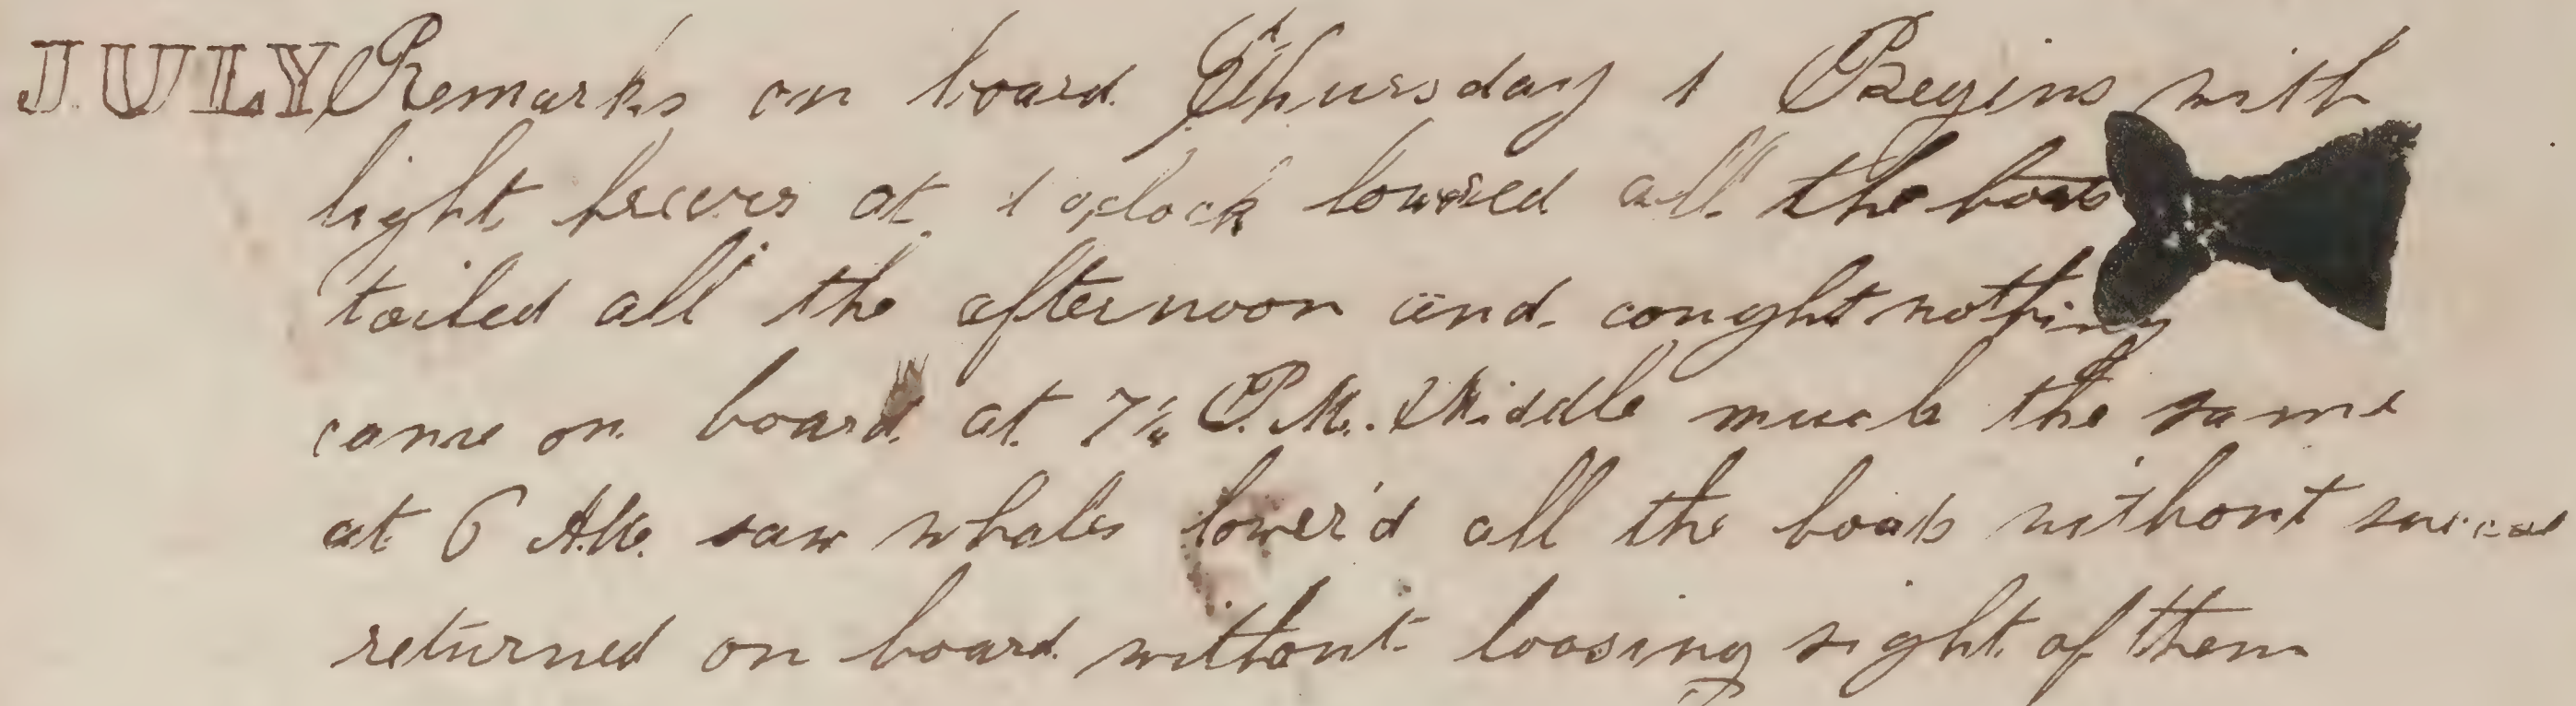 JULY Remarks on board Thursday 1 Begins with
light breezes at 1 oclock lowered all the boats
toiled all the afternoon and cought nothing
came on board at 7½ P.M. Middle much the same
at 6 A.M. saw whales lower'd all the boats without
returned on board without loosing sight of them